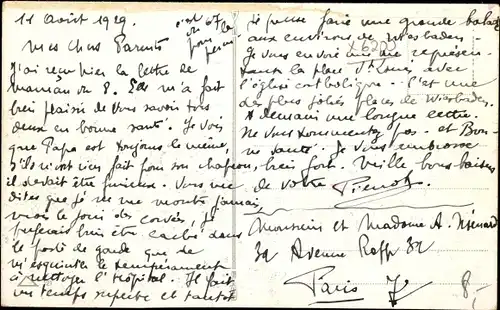 11 Août 1929.
Mes chers Parents
J'ai reçu hier la lettre de
maman du 8. Elle m'a fait
bien plaisir de vous savoir tous
deux en bonne santé. Je vois
que Papa est toujours le même,
s'ils n'ont rien fait pour son chapeau,
il devait être furieux. Vous me
dites que je ne monte jamais,
mais le jour des corvées, je
préférais bien être caché dans
le poste de garde que de
m'esquinter le tempérament
à nettoyer l'hôpital. Il fait
un temps superbe et tantôt
je pense faire une grande balade
aux environs de Wiesbaden.
Je vous envoie une vue
la place St Louis, avec
l'église catholique. C'est une
des plus jolies places de Wiesbaden.
A demain une longue lettre.
Ne vous tourmentez pas. et Bonne
santé. Je vous embrasse
bien fort. Mille bons baisers
de votre Pierrot.
Monsieur et Madame A.
32 Avenue Rapp 32
Paris 7
8,-